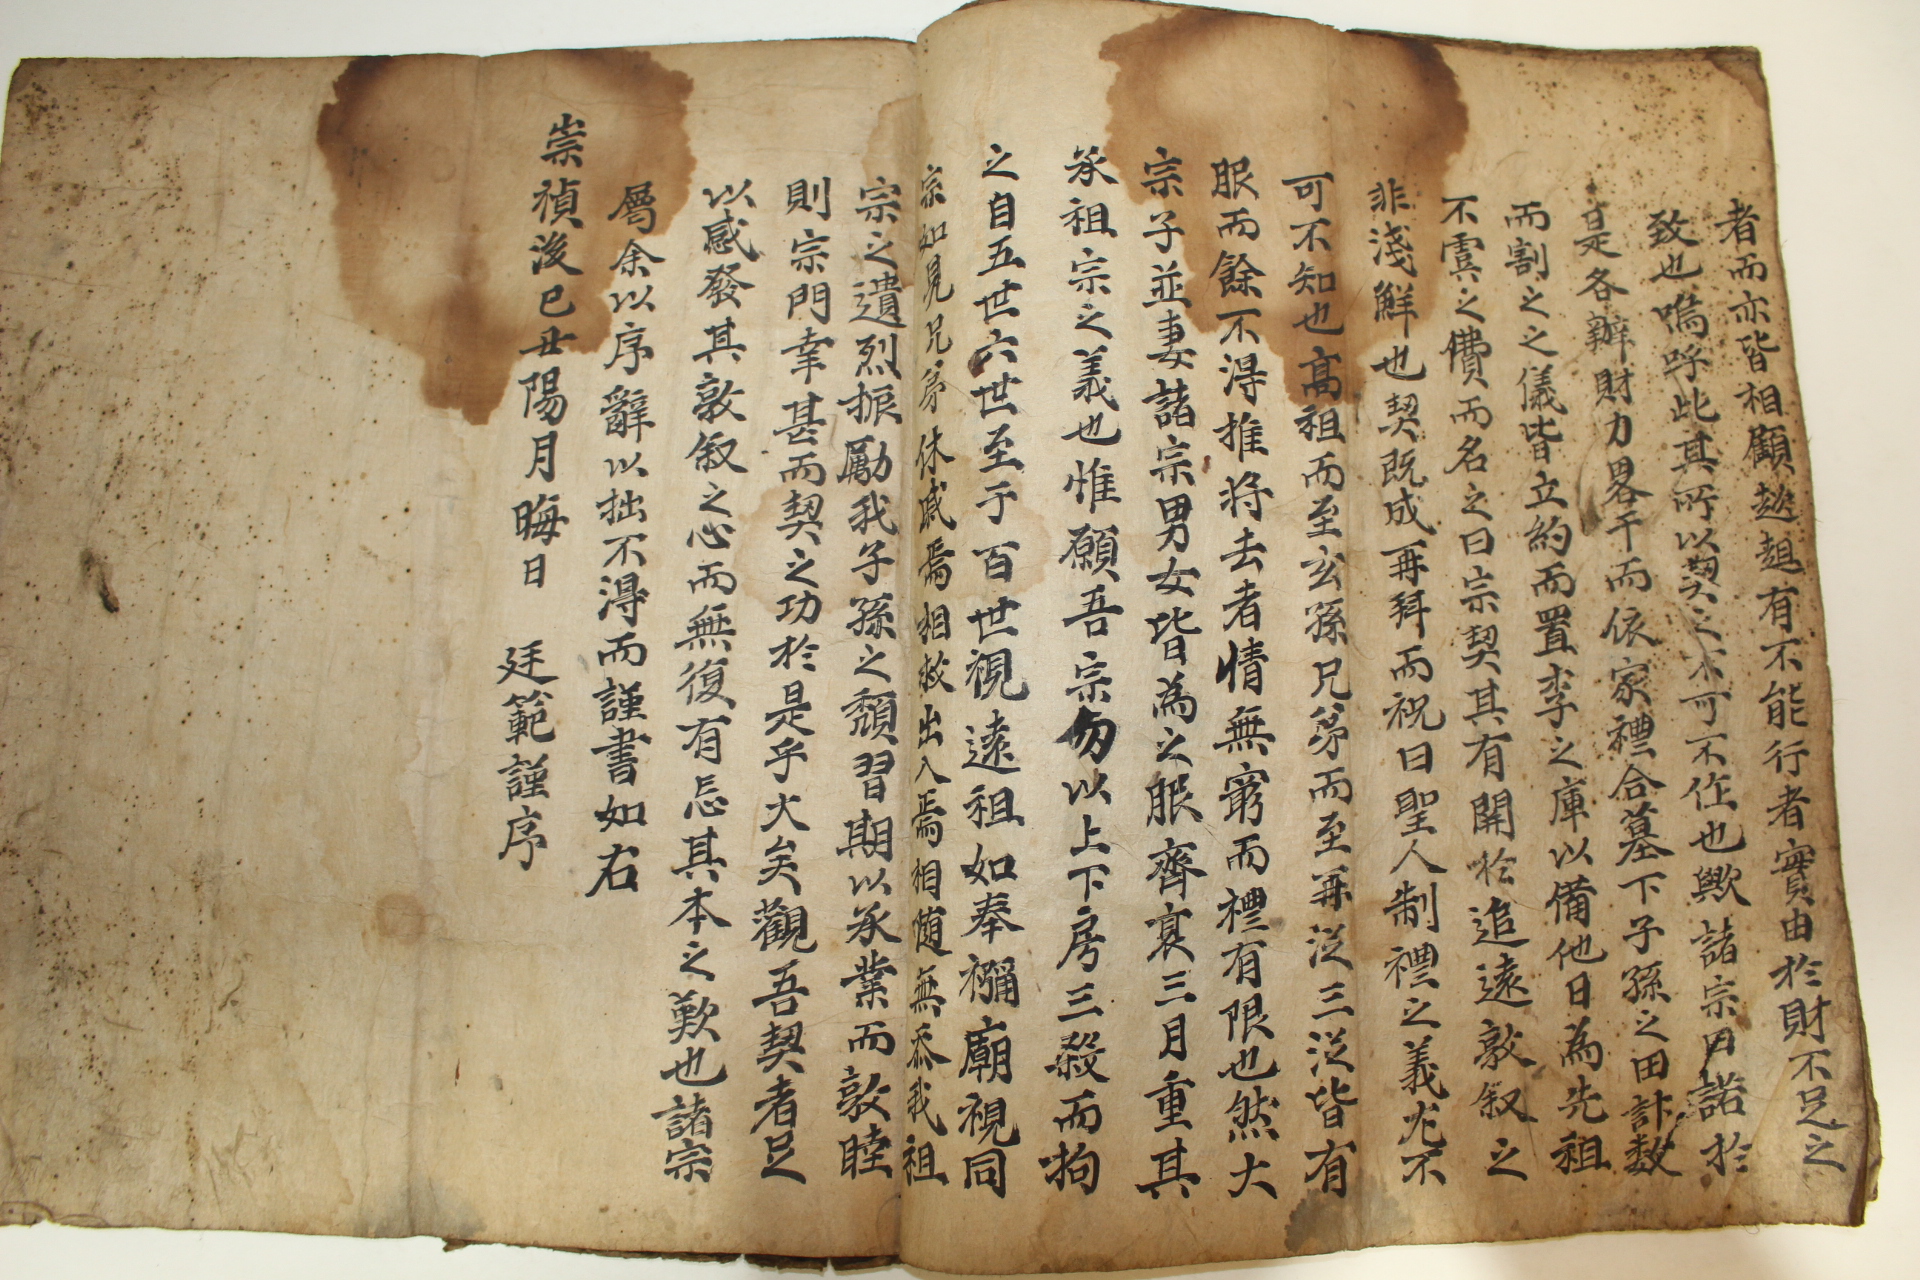 者而亦皆相顧趑趄有不能行者實由於財不足之
致也嗚呼此其所以契之不可不作也歟諸宗曰諾於
是各辦財力畧干而依家禮合墓下子孫之田計數
而割之之儀皆立約而置李之庫以備他日為先祖
不虞之費而名之曰宗契其有關於追遠敦叙之
非淺鮮也契既成再拜而祝曰聖人制禮之義光不
可不知也高祖而至玄孫兄弟而至再從三從皆有
服而餘不得推將去者情無窮而禮有限也然大
宗子並妻諸宗男女皆為之服齊衰三月重其
承祖宗之義也惟願吾宗勿以上下房三殺而拘
之自五世六世至于百世視遠祖如奉禰廟視同
宗如見兄弟休戚焉相救出入焉相随無忝我祖
宗之遺烈振勵我子孫之頹習期以承業而敦睦
則宗門幸甚而契之功於是乎大矣觀吾契者足
以感發其敦叙之心而無復有忘其本之歎也諸宗
屬余以序辭以拙不得而謹書如右
崇禎後己丑陽月晦日 廷範謹序